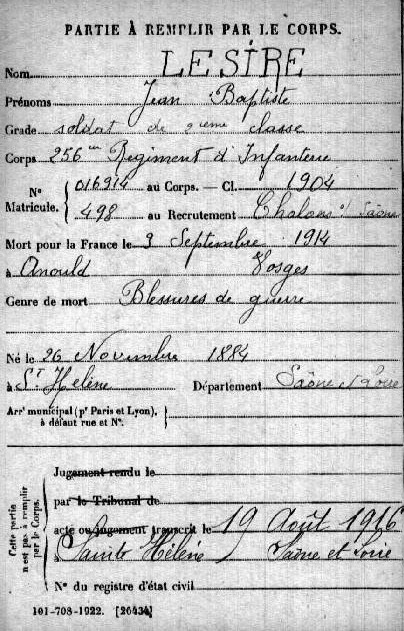 PARTIE À REMPLIR PAR LE CORPS.
Nom LESIRE
Prénoms Jean Baptiste
Grade soldat de 2ème classe
Corps 256eme Regiment d'Infanterie
Nº Matricule. 016914 au Corps. — Cl. 1904
498 au Recrutement Chalons s/ Saône
Mort pour la France le 3 Septembre 1914
à Anould Vosges
Genre de mort Blessures de guerre
Né le 26 Novembre 1884
à St Helène Département Saône et Loire
Arrt municipal (pr Paris et Lyon), à défaut rue et Nº.
Cette partie n'est pas à remplir par le Corps.
Jugement rendu le
par le Tribunal de
acte ou jugement transcrit le 19 Août 1916
à Sainte Hélène Saône et Loire
Nº du registre d'état civil
101-708-1922. [26434]